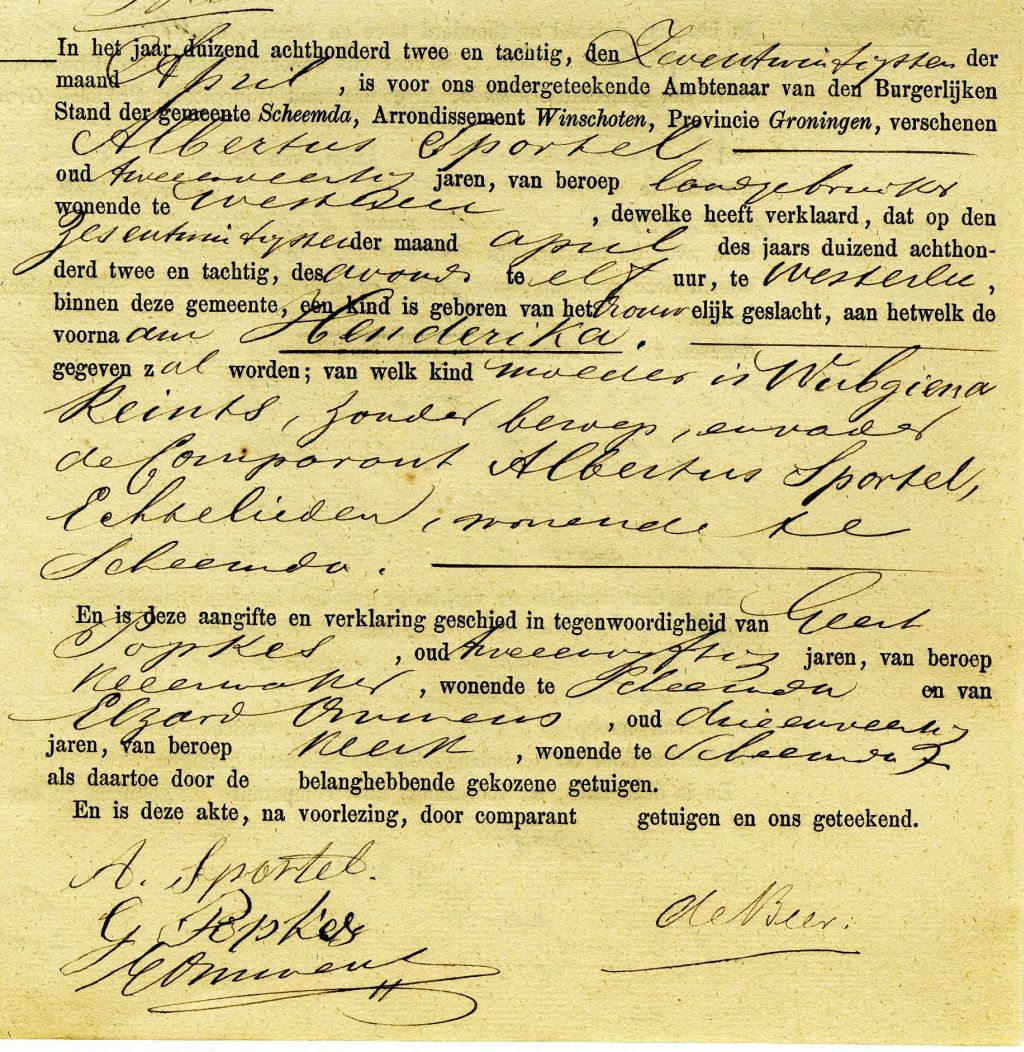 In het jaar duizend achthonderd twee en tachtig, den Zeventwintigsten der
maand April, is voor ons ondergeteekende Ambtenaar van den Burgerlijken
Stand der gemeente Scheemda, Arrondissement Winschoten, Provincie Groningen, verschenen
Albertus Sportel
oud tweeenveertig jaren, van beroep landgebruiker
wonende te Westerlee, dewelke heeft verklaard, dat op den
Zesentwintigsten der maand april des jaars duizend achthon-
derd twee en tachtig, des avonds te elf uur, te Westerlee,
binnen deze gemeente, een kind is geboren van het vrouwelijk geslacht, aan hetwelk de
voornaam Henderika.
gegeven zal worden; van welk kind moeder is Wubgiena
Reints, zonder beroep, en vader
de Comparant Albertus Sportel,
Echtelieden, wonende te
Scheemda.
En is deze aangifte en verklaring geschied in tegenwoordigheid van Geert
Popkes, oud tweeenvyftig jaren, van beroep
kleermaker, wonende te Scheemda en van
Elzard Ommens, oud drieenveertig
jaren, van beroep klerk, wonende te Scheemda
als daartoe door de belanghebbende gekozene getuigen.
En is deze akte, na voorlezing, door comparant getuigen en ons geteekend.
A. Sportel.
G. Popkes
de Beer.
EOmmens